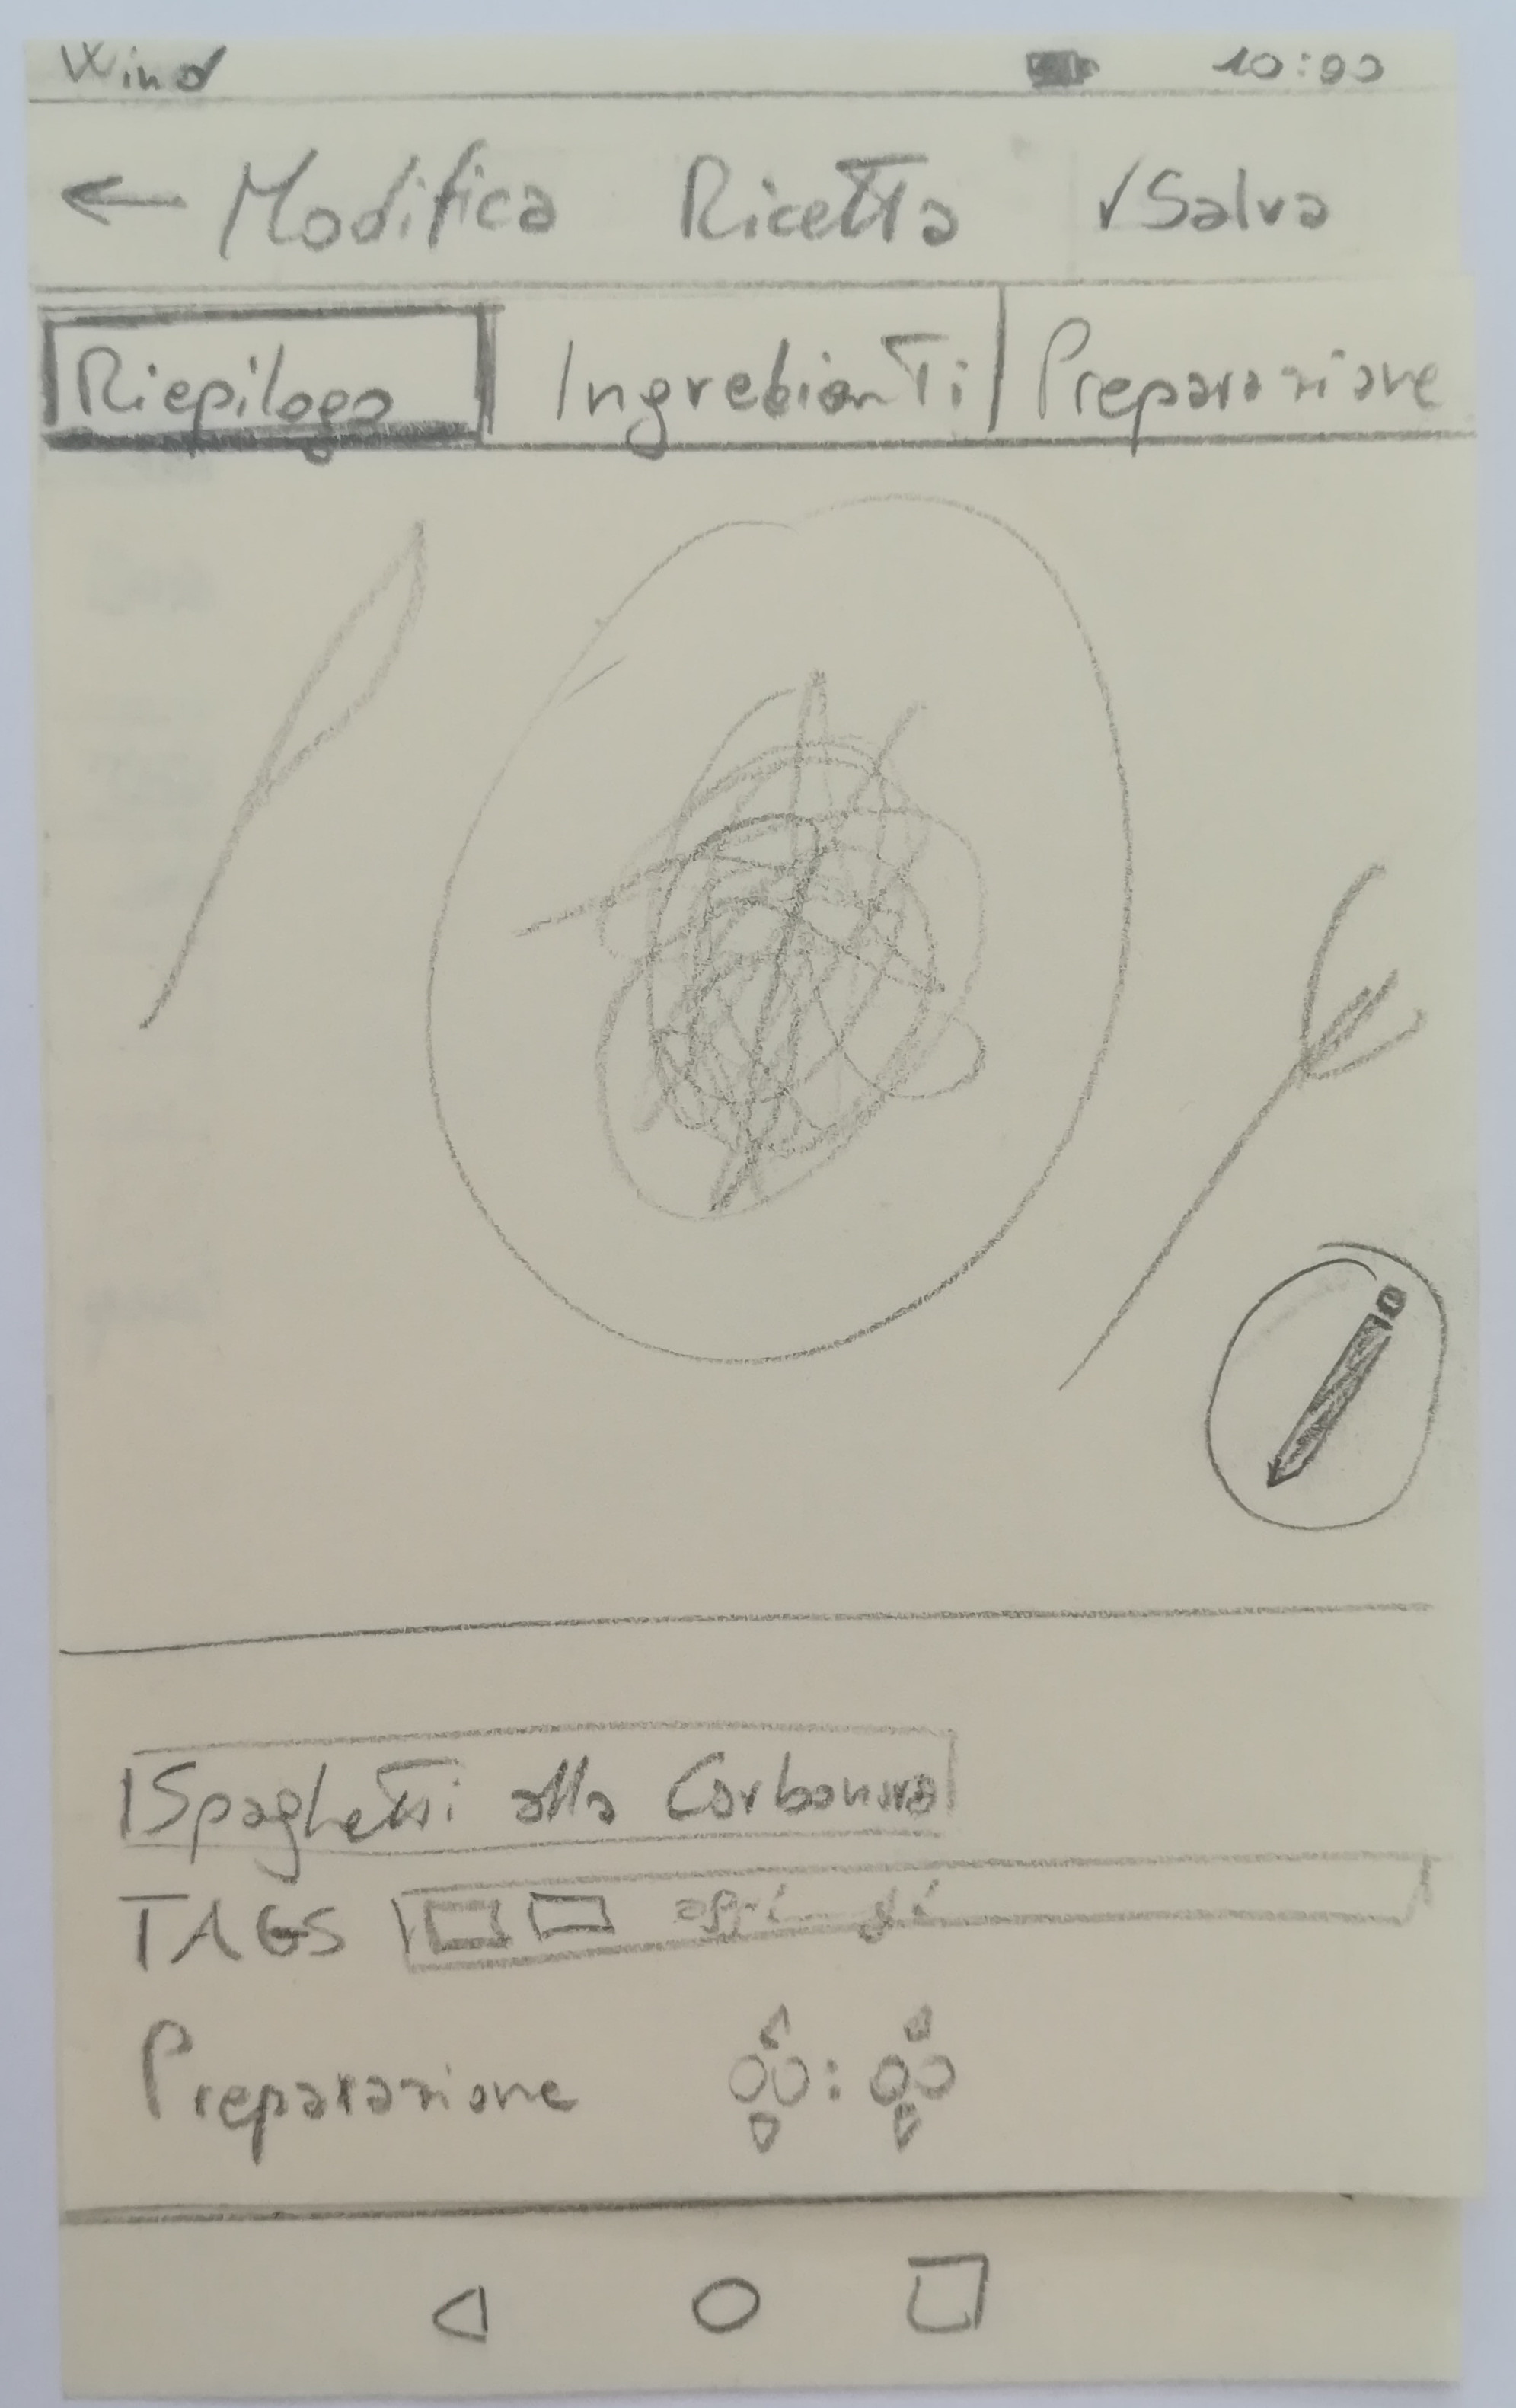 Wind 10:00
← Modifica Ricetta ✓Salva
Riepilogo Ingredienti Preparazione
Spaghetti alla Carbonara
TAGS
Preparazione 00:00